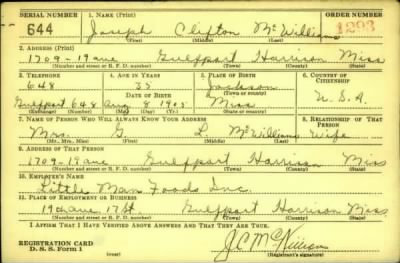 SERIAL NUMBER 1. NAME (Print) ORDER NUMBER
644 Joseph Clifton McWilliams 1293
(First) (Middle) (Last)
2. ADDRESS (Print)
1709-19 ave Gulfport Harrison Miss
(Number and street or R. F. D. number) (Town) (County) (State)
3. TELEPHONE 4. AGE IN YEARS 5. PLACE OF BIRTH 6. COUNTRY OF CITIZENSHIP
648 35 Jackson
DATE OF BIRTH (Town or county)
Gulfport 648 Aug 8 1905 Miss U.S.A.
(Exchange) (Number) (Mo.) (Day) (Yr.) (State or country)
7. NAME OF PERSON WHO WILL ALWAYS KNOW YOUR ADDRESS 8. RELATIONSHIP OF THAT PERSON
Mrs. G L. McWilliams Wife
(Mr., Mrs., Miss) (First) (Middle) (Last)
9. ADDRESS OF THAT PERSON
1709-19 ave Gulfport Harrison Miss
(Number and street or R. F. D. number) (Town) (County) (State)
10. EMPLOYER'S NAME
Little Man Foods Inc.
11. PLACE OF EMPLOYMENT OR BUSINESS
19th ave 17 St Gulfport Harrison Miss
(Number and street or R. F. D. number) (Town) (County) (State)
I AFFIRM THAT I HAVE VERIFIED ABOVE ANSWERS AND THAT THEY ARE TRUE.
REGISTRATION CARD J C McWilliams
D. S. S. Form 1 (Registrant's signature)